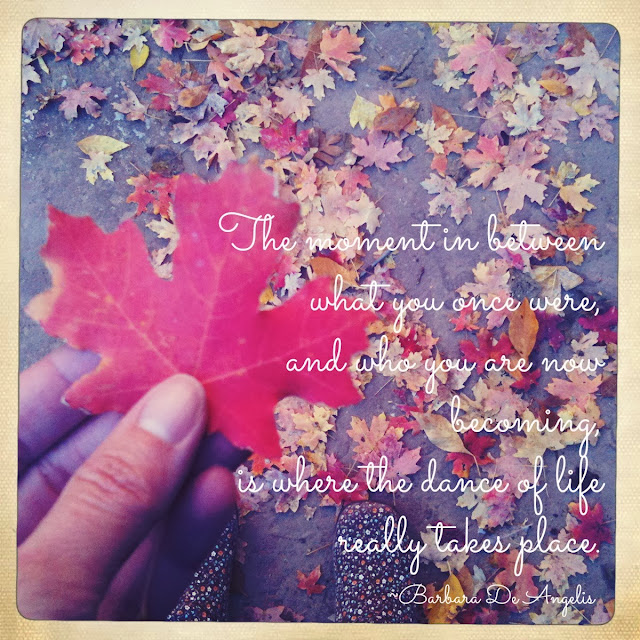 The moment in between
what you once were,
and who you are now
becoming,
is where the dance of life
really takes place.
~Barbara De Angelis